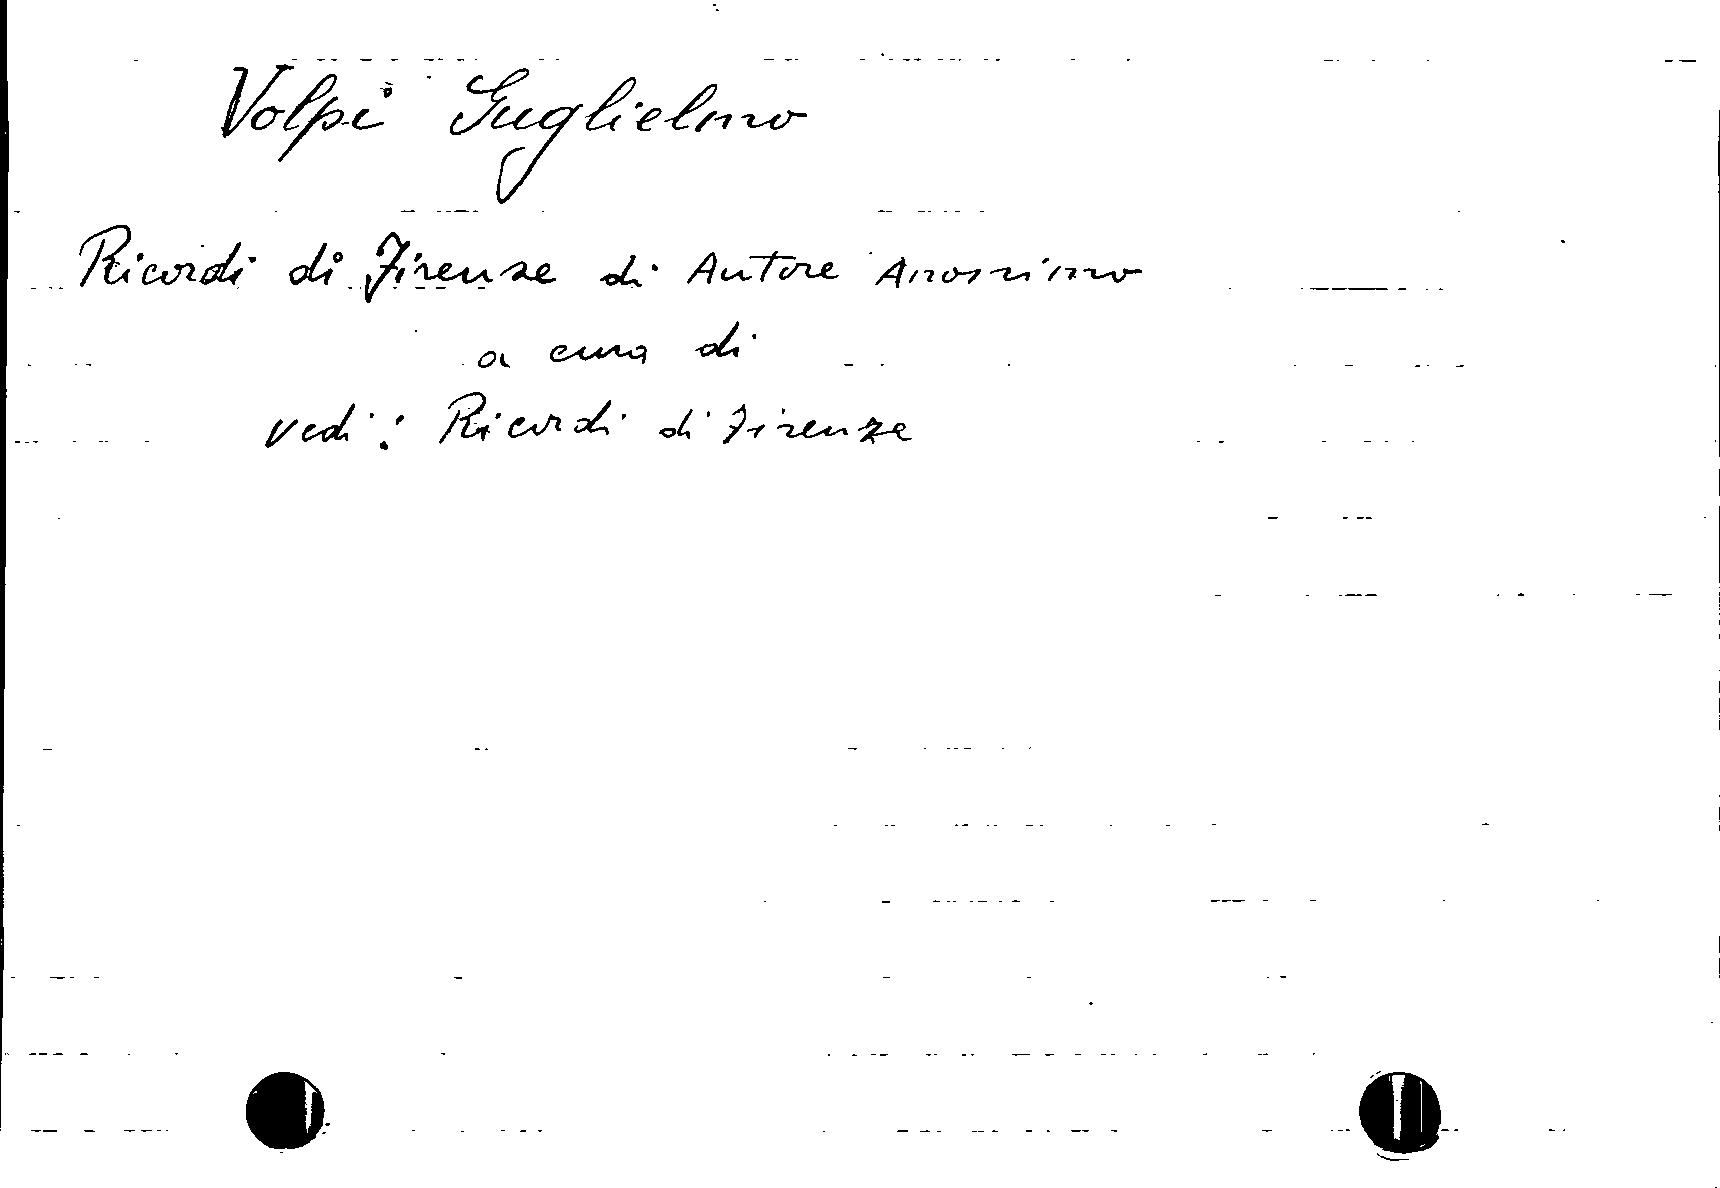 Volpi Guglielmo
Ricordi di Firenze di Autore Anonimo
a cura di
vedi: Ricordi di Firenze